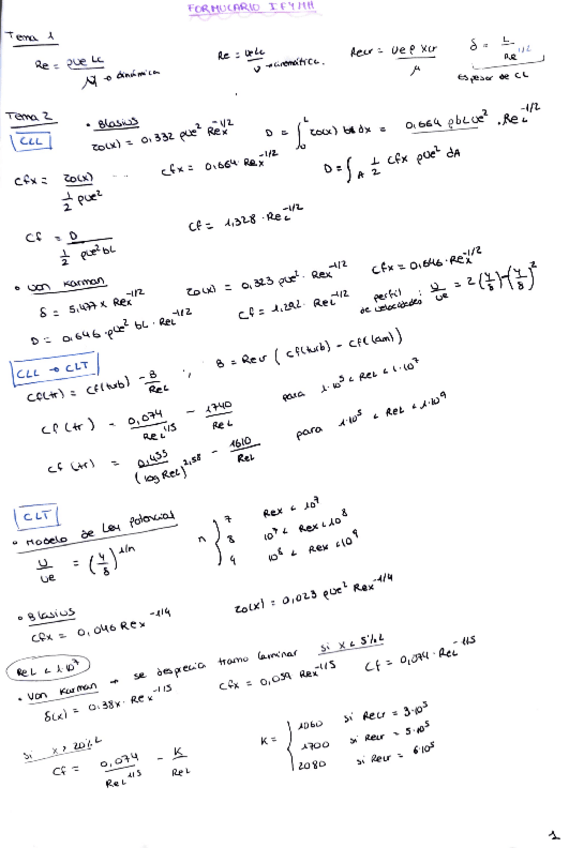 FORMULARIO I.F Y MH
Tema 1
Re = ρUe Lc / μ → dinámica
Re = Ue Lc / ν → cinemática
Recr = Ue ρ xcr / μ
δ = L / Re^1/2
Espesor de CL
Tema 2
CLL
• Blasius
τo(x) = 0,332 ρUe² Rex^-1/2
D = ∫₀^L τo(x) b dx = 0,664 ρbLUe² · ReL^-1/2
Cfx = τo(x) / ½ ρUe²
Cfx = 0,664 · Rex^-1/2
D = ∫A ½ Cfx ρUe² dA
Cf = D / ½ ρUe² bL
Cf = 1,328 · ReL^-1/2
• Von Karman
δ = 5,477 x Rex^-1/2
τo(x) = 0,323 ρUe² · Rex^-1/2
Cfx = 0,646 · Rex^-1/2
D = 0,646 · ρUe² bL · ReL^-1/2
Cf = 1,292 · ReL^-1/2
perfil de velocidades : U/Ue = 2(y/δ) - (y/δ)²
CLL → CLT
Cf(tr) = Cf(turb) - B/ReL ; B = Recr (Cf(turb) - Cf(lam))
Cf(tr) = 0,074 / ReL^1/5 - 1740/ReL para 1·10⁵ < ReL < 1·10⁷
Cf(tr) = 0,455 / (log ReL)^2,58 - 1610/ReL para 1·10⁵ < ReL < 1·10⁹
CLT
• Modelo de Ley Potencial
U/Ue = (y/δ)^1/n
n { 7 Rex < 10⁷
8 10⁷ < Rex < 10⁸
9 10⁸ < Rex < 10⁹
• Blasius
Cfx = 0,046 Rex^-1/4
τo(x) = 0,023 ρUe² Rex^-1/4
ReL < 1·10⁷
• Von Karman → se desprecia tramo laminar si x < 5% L
δ(x) = 0,38x · Rex^-1/5
Cfx = 0,059 Rex^-1/5
Cf = 0,074 · ReL^-1/5
si x > 20% L
Cf = 0,074 / ReL^1/5 - K/ReL
K = { 1060 si Recr = 3·10⁵
1700 si Recr = 5·10⁵
2080 si Recr = 6·10⁵
1